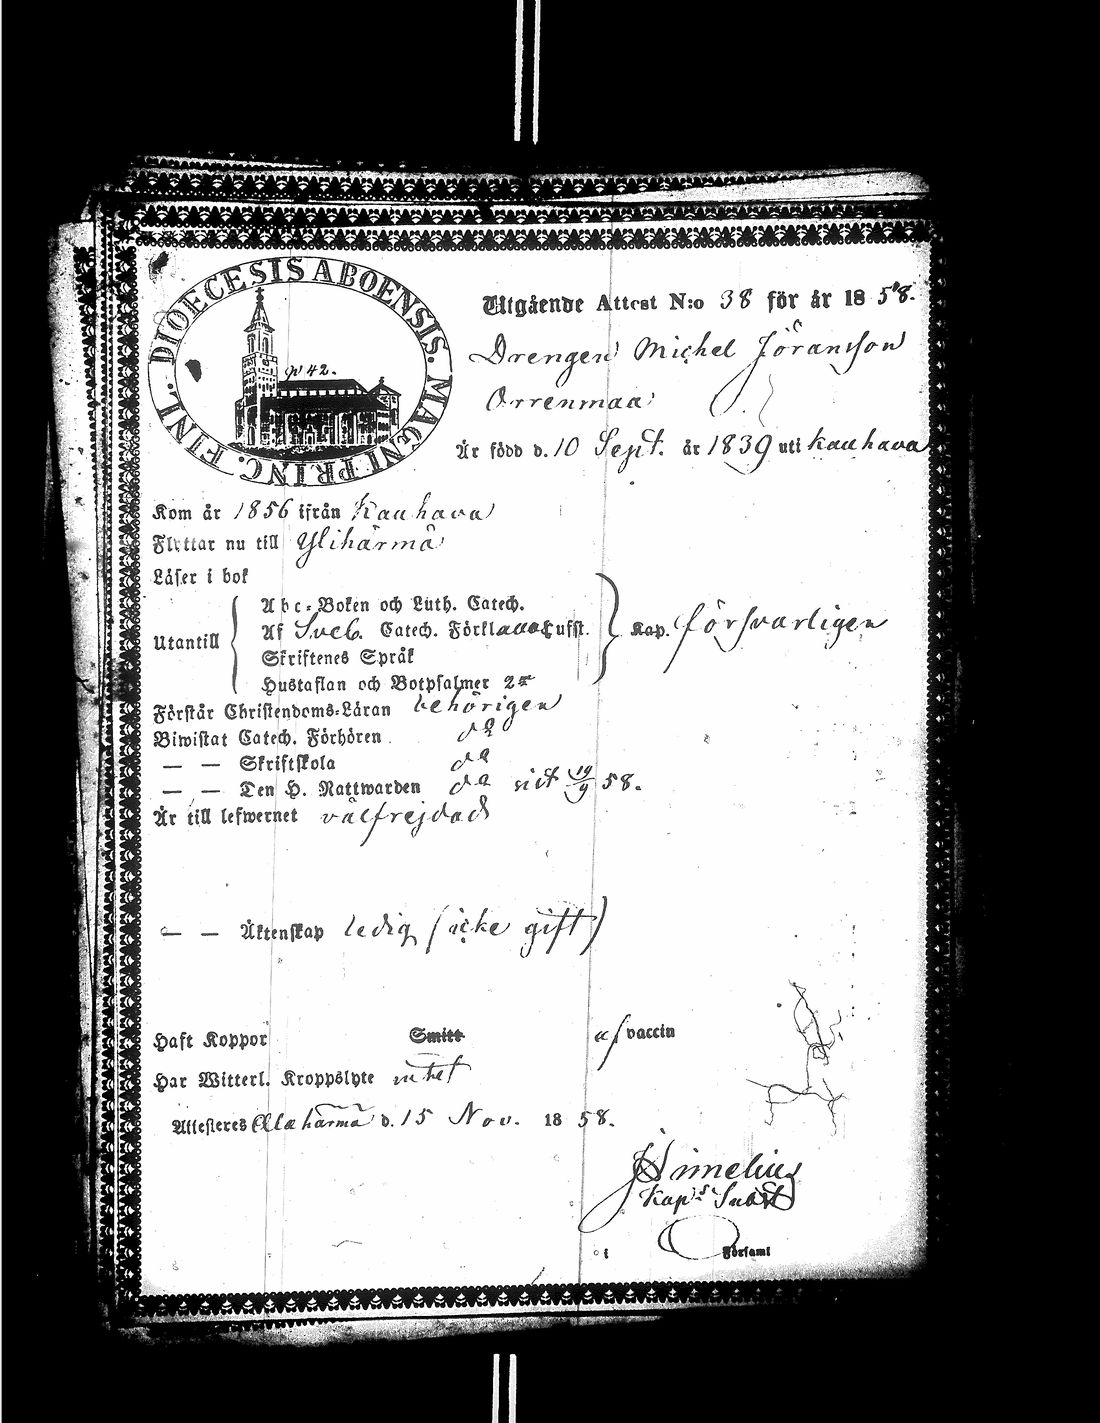 DIOECESIS ABOENSIS. MAGNI PRINC. FINL.
p 42.
Utgående Attest N:o 38 för år 1858.
Drengen Michel Jöransson
Orrenmaa
Är född d. 10 Sept. år 1839 uti Kauhava
Kom år 1856 ifrån Kauhava
Flyttar nu till Ylihärmä
Läser i bok
Utantill
Abc-Boken och Luth. Catech.
Af Sveb. Catech. Förkl
Skriftenes Språk
Hustaflan och Botpsalmer
Kap. försvarligen
Förstår Christendoms-Läran behörigen
Biwistat Catech. Förhören do
— — Skriftskola do
— — Den H. Nattwarden do sist 19/9 58.
Är till lefwernet välfrejdad
— — Äktenskap ledig (icke gift)
Haft Koppor Smitt af vaccin
Har Witterl. Kroppslyte intet
Attesteres Alahärmä d. 15 Nov. 1858.
Kap:s
i Församl